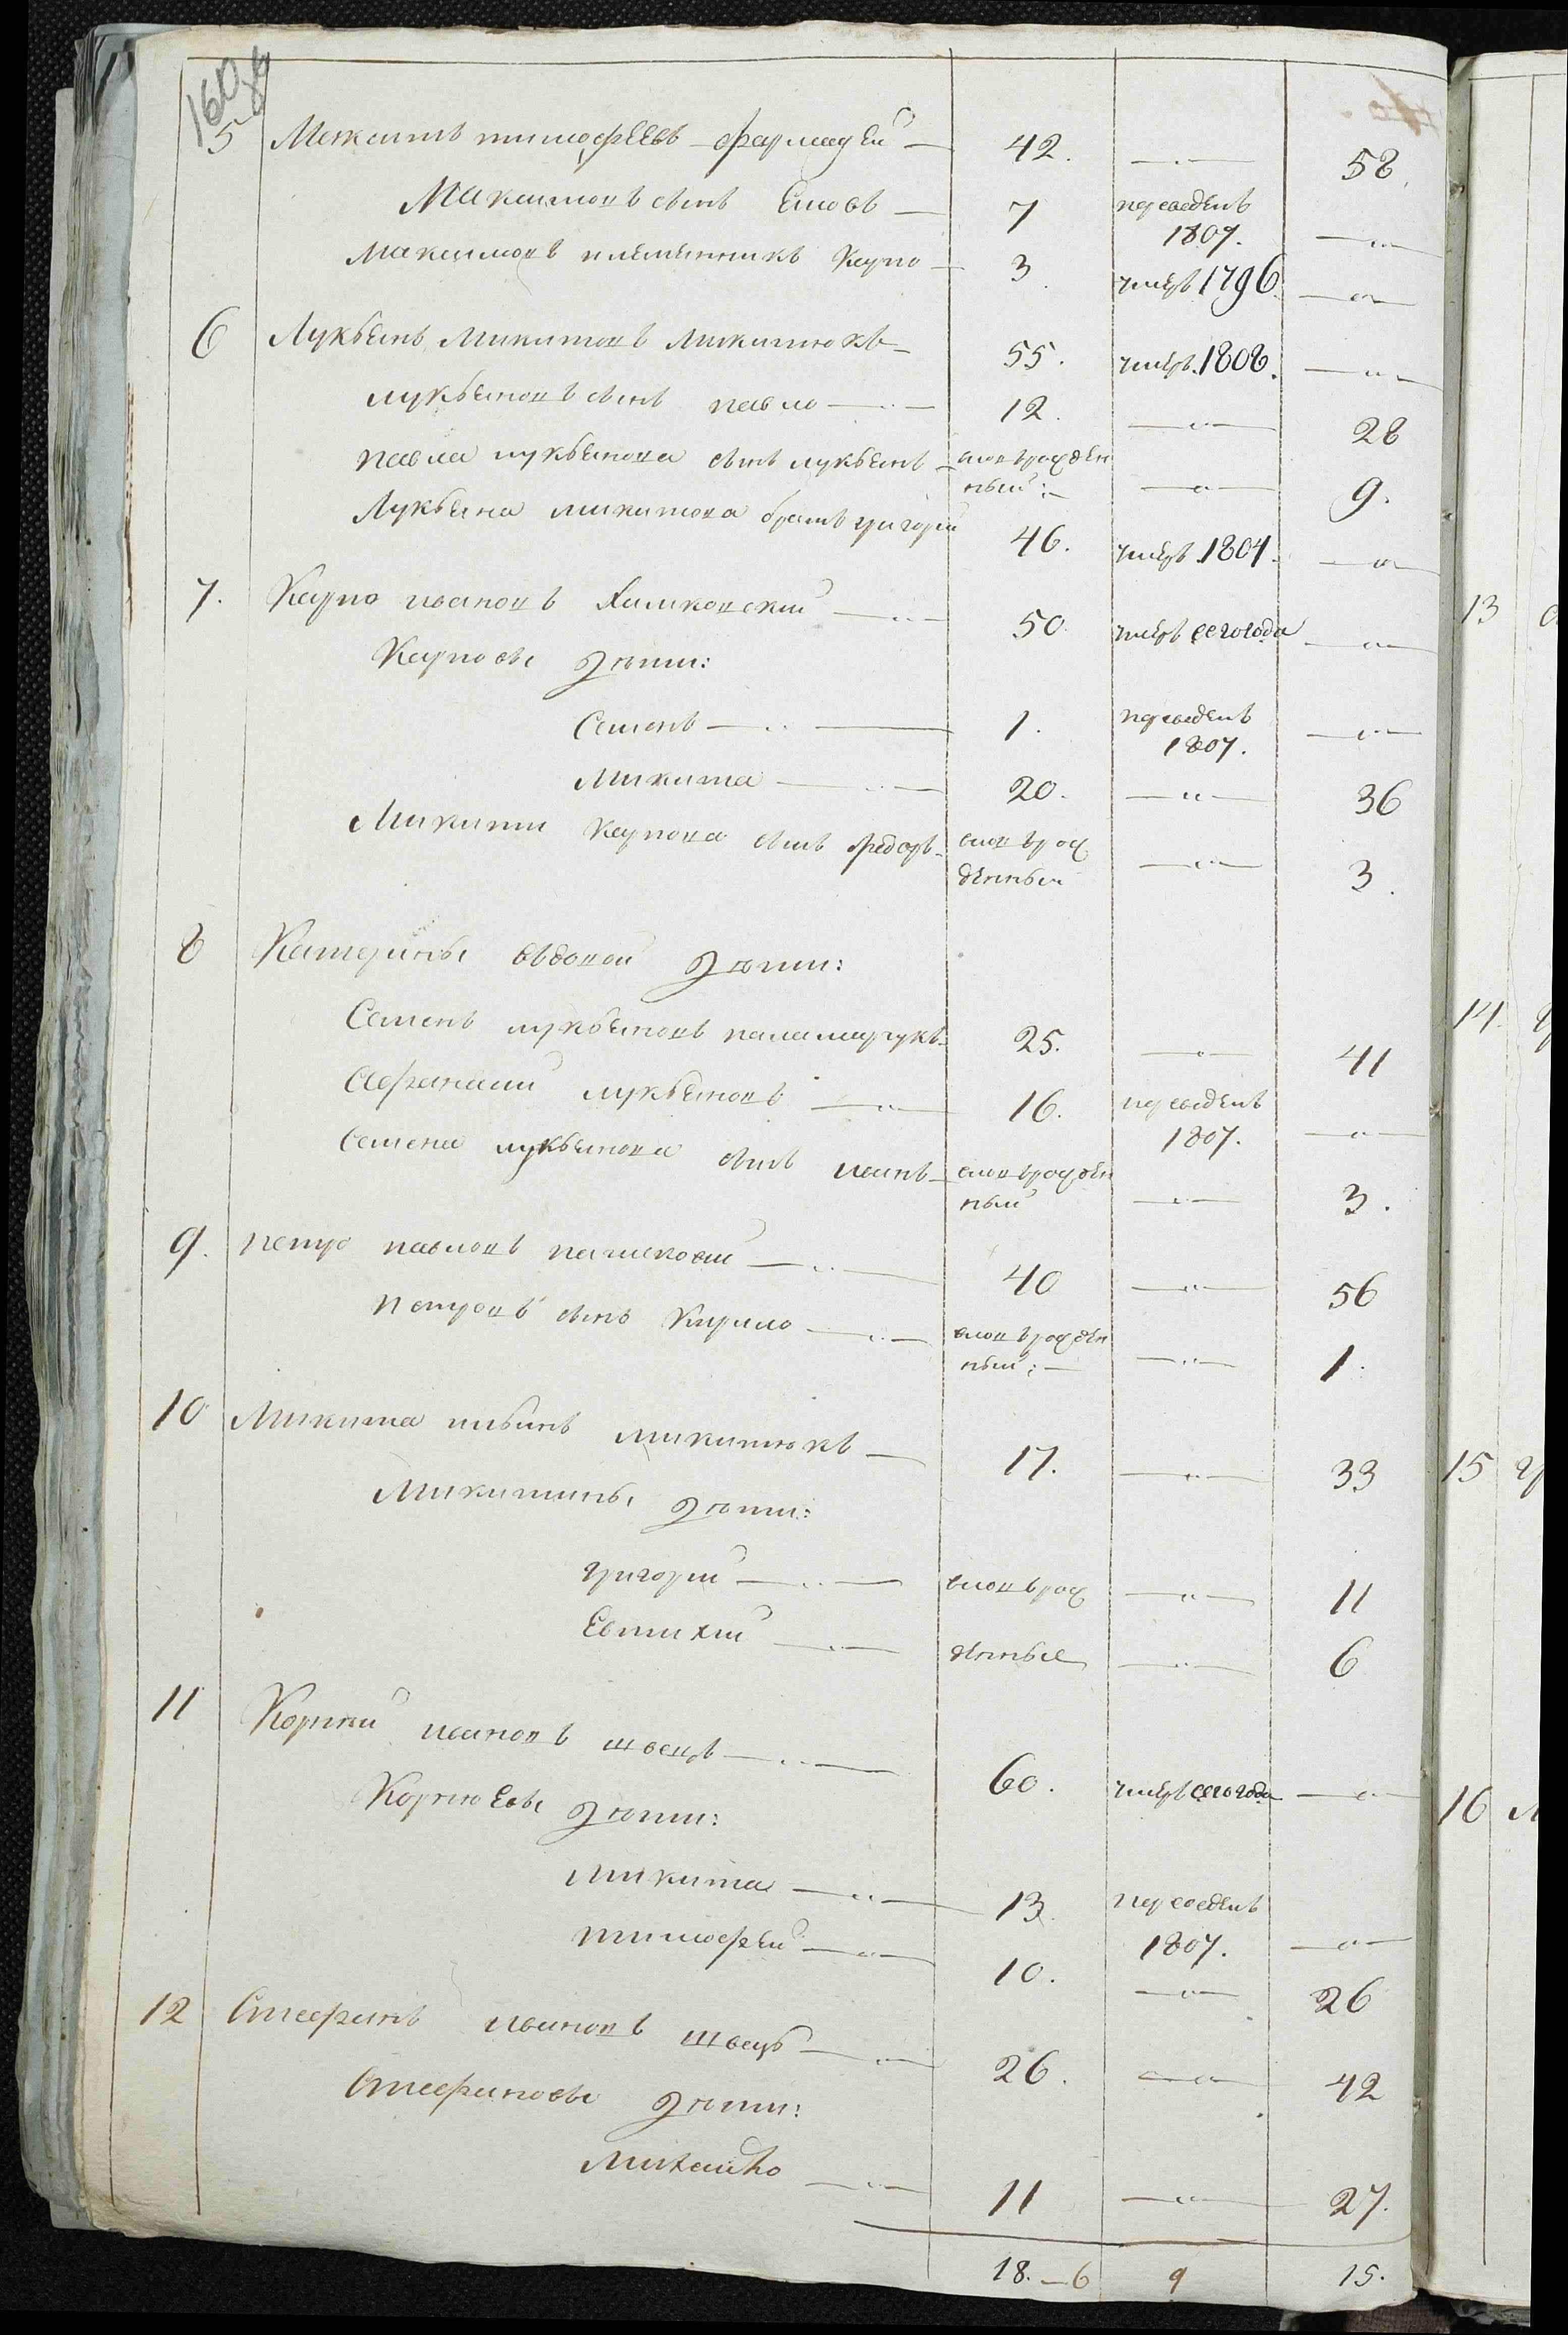 160 об
5 Максимъ тимофеевъ фармадей 42. 58.
Максимовъ сынъ Емовъ 7 переведенъ 1807.
Максимовъ племенникъ Карпо 3 умеръ 1796.
6 Лукьянъ Микитовъ Микитюкъ 55. умеръ. 1808.
лукьяновъ сынъ павло 12. 28
павла лукьянова сынъ лукьянъ
вновьрожденный: 9.
Лукьяна микитова братъ григорий 46. умеръ. 1804.
7. Карпо ивановъ Химковский 50. умеръ сего года
Карповы дѣти:
Семенъ 1. переведенъ 1807.
Микита 20. 36
Микити Карпова сынъ Федоръ вновьрожденный 3.
8 Катерины вдовой дѣти:
Семенъ лукьяновъ паламарчукъ 25. 41
Афанасий лукьяновъ 16. переведенъ 1807.
Семена лукьянова сынъ иванъ вновьрожденный 3.
9. петро павловъ 40 56
петровъ сынъ Кирило вновьрожденный: 1.
10 Микита ильинъ микитюкъ 17. 33
Микитины дѣти:
григорий вновьрож 11
Евтихий денные 6
11 Корний ивановъ швецъ 60. умеръ сего года
Корнюевы дѣти:
микита 13. переведенъ 1807.
тимофей 10. 26
12 Стефанъ ивановъ швецъ 26. 42
Стефановы дѣти:
Михайло 11 27.
18. 6 9 15.
13
14.
15
16